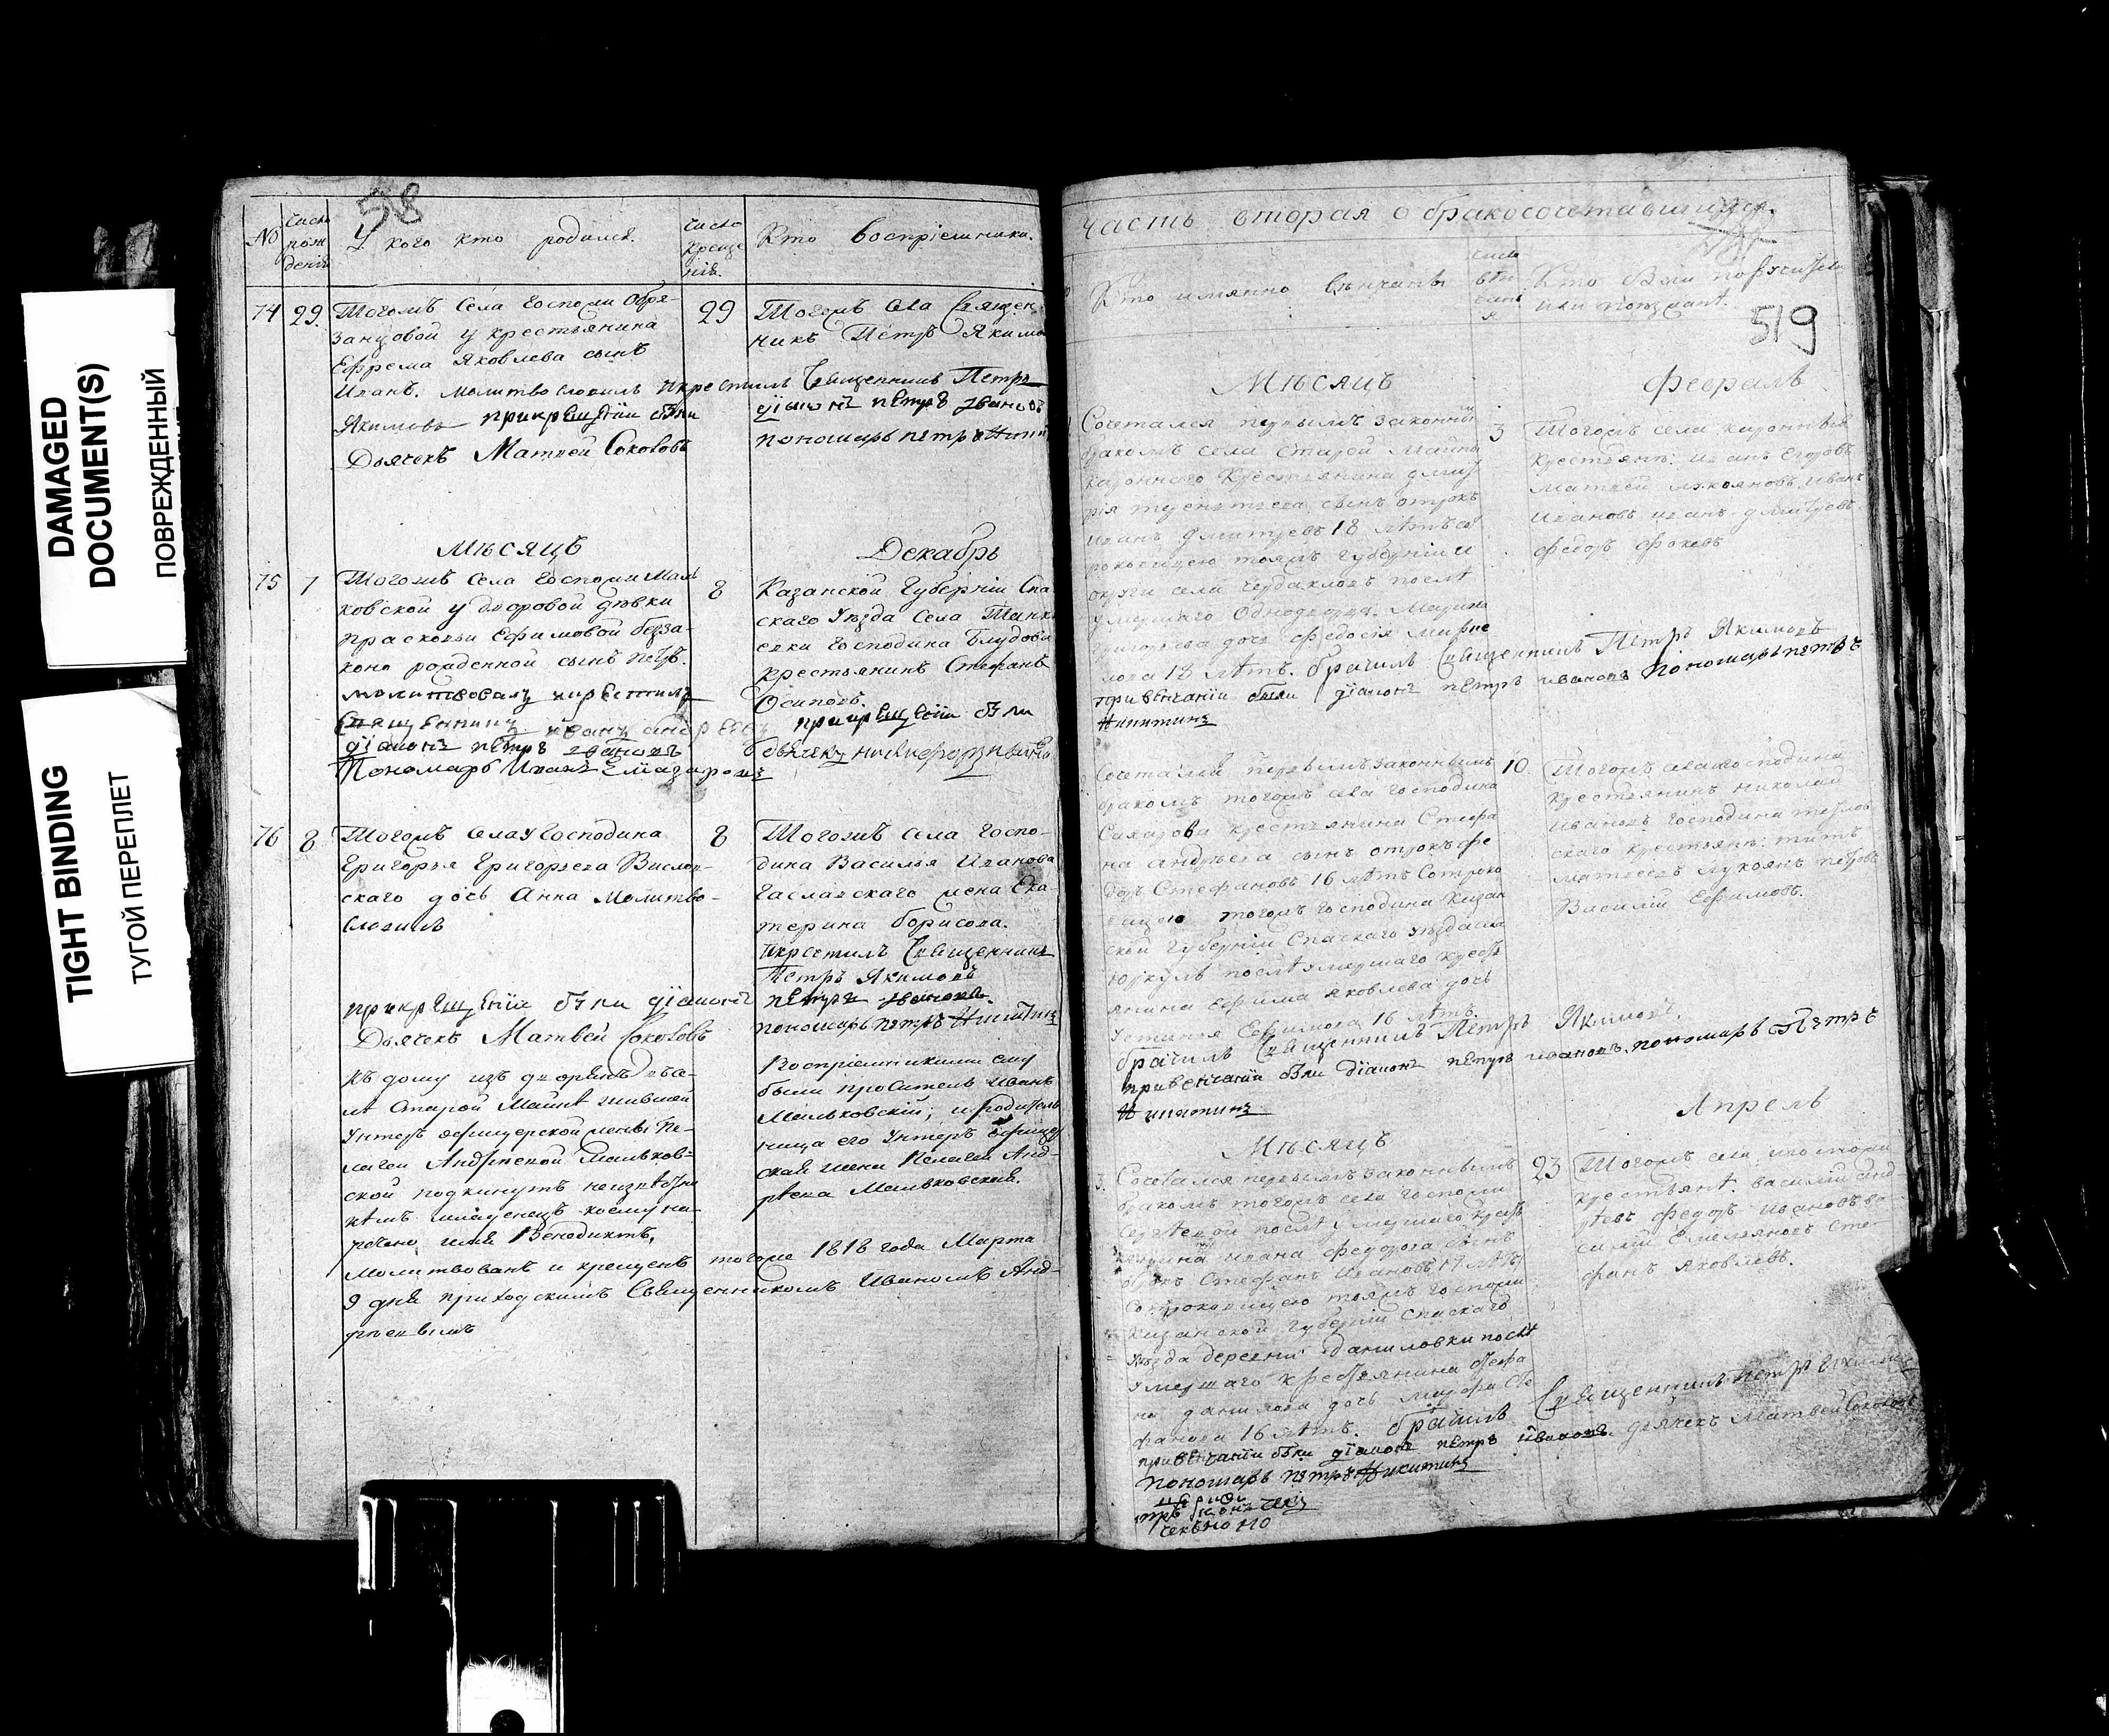 DAMAGED
DOCUMENT(S)
ПОВРЕЖДЕННЫЙ
TIGHT BINDING
ТУГОЙ ПЕРЕПЛЕТ
58
№
число рож
денія
У кого кто родился.
число
креще
нія.
Кто воспріемники.
74
29
Тогожъ Села Госпожи Обре-
занцовой у крестьянина
Ефрема Яковлева сынъ
Иванъ. Молитвословилъ и крестилъ Священникъ Петръ
Якимовъ при крещеніи были
Дьячекъ Матвей Соколовъ
29
Тогожъ Села Священ
никъ Петръ Якимо
діаконъ петръ ивановъ
пономарь петръ
Мѣсяцъ
Декабрь
75
7
Тогожъ Села Госпожи Маль
ковской у дворовой дѣвки
Прасковьи Ефимовой безза-
конно рожденной сынъ петръ.
молитвовалъ и крестилъ
Священникъ иванъ андреевъ
діаконъ петръ ивановъ
Пономарь Иванъ
8
Казанской Губерніи Спа
скаго Уѣзда Села Танке
евки Господина Блудова
крестьянинъ Стефанъ
Осиповъ.
при крещеніи были
76
8
Тогожъ Села у Господина
Григорья Григорьева Вислов-
скаго дочь Анна Молитво-
словилъ
8
Тогожъ Села Госпо-
дина Василья Иванова
жена Ека-
терина борисова.
и крестилъ Священникъ
Петръ Якимовъ
при крещеніи были діаконъ петръ ивановъ.
Дьячекъ Матвей Соколовъ
пономарь петръ Никитинъ
Къ дому изъ дворянъ въ се-
лѣ Старой Майнѣ жившей
Унтеръ офицерской жены Пе-
лагеи Андреевой Мальков-
ской подкинутъ неизвѣстно
кѣмъ младенецъ коему на-
речено имя Венедиктъ,
Молитвованъ и крещенъ тогоже 1818 года Марта
9 дня приходскимъ Священникомъ Иваномъ Анд-
реевымъ
Воспріемниками ему
были Иванъ
Мальковскій; и родитель
ница его Унтеръ офицер
ская жена Пелагея Анд-
реева Мальковская.
Часть вторая о бракосочетавшихся.
Кто имянно вѣнчаны
Кто были поручители
или поѣзжане.
519
Мѣсяцъ
Февраль
Сочетался первымъ законнымъ
бракомъ села Старой Майны
крестьянина дмит
рія сынъ отрокъ
Иванъ дмитревъ 18 лѣтъ со
роковицею тояжъ Губерніи и
округи села Чердаклов послѣ
умершаго Однодворца
дочь Федосія
18 лѣтъ. брачилъ Священникъ Петръ Якимовъ
при вѣнчаніи были діаконъ петръ ивановъ Пономарь петръ
Никитинъ
3
Тогожъ села
крестьяне: иванъ Егоровъ
Матвей лукояновъ. Иванъ
Ивановъ иванъ дмитревъ
федоръ фокевъ
Сочетался первымъ законнымъ
бракомъ тогожъ села Господина
Сахарова крестьянина Стефа
на андреева сынъ отрокъ фе
доръ Стефановъ 16 лѣтъ Сотроко
вицею тогожъ Господина Казан
ской Губерніи Спаскаго Уѣзда села
Юркуль послѣ умершаго крест
янина Ефима Яковлева дочь
Устинья Ефимова 16 лѣтъ.
брачилъ Священникъ Петръ Якимовъ.
при вѣнчаніи были діаконъ петръ ивановъ. пономарь Петръ
Никитинъ
10
Тогожъ села господина
крестьянинъ николай
Ивановъ Господина
скаго крестьяне: титъ
матвеевъ лукоянъ петровъ
Василий Ефимовъ.
Мѣсяцъ
Апрель
3
Сочетался первымъ законнымъ
бракомъ тогожъ села Госпожи
Сергѣевой послѣ умершаго крест
янина ивана федорова сынъ
отрокъ Стефанъ Ивановъ 17 лѣтъ
Сотроковицею тояжъ Госпожи
Казанской Губерніи Спаскаго
Уѣзда деревни даниловки послѣ
умершаго крестьянина Стефа
на данилова дочь Марфа Сте
фанова 16 лѣтъ. брачилъ Священникъ петръ Якимовъ
при вѣнчаніи были діаконъ петръ ивановъ. дьячекъ Матвей Соколовъ
Пономарь петръ Никитинъ
23
Тогожъ села госпожи
крестьяне. василий анд
реевъ федоръ Ивановъ ва
силий Емельяновъ Сте-
фанъ Яковлевъ.